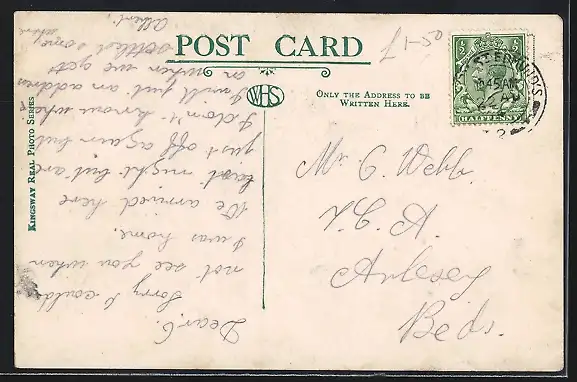 POST CARD
WHS
ONLY THE ADDRESS TO BE
WRITTEN HERE.
KINGSWAY REAL PHOTO SERIES
HALFPENNY
ST EDMUND'S
Dear C.
Sorry I could
not see you when
I was home.
We arrived here
last night but are
just off again but
I don't know who
I will put an address
on when we get
settled some
where
Albert.
Mr C. Webb.
Arlesey
Beds.